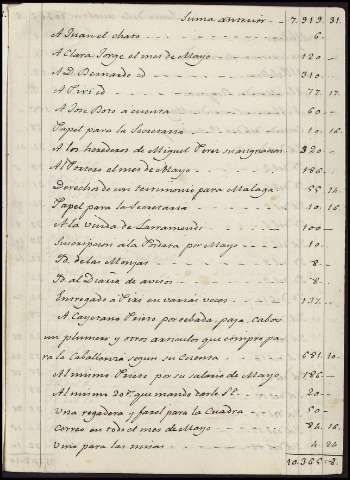 Suma anterior - - 7.313. 31.
A Juan el chato - - - 6.
A Clara Jorge el mes de Mayo - - - 120.
A D. Bernardo id - - - 310.
A Pixi id - - - 77. 17.
A Jose Boro a cuenta - - - 60.
Papel para la Secretaria - - - 10. 16.
A los herederos de Miguel Perez su asignacion 320.
Al Portero el mes de Mayo - - - 186.
Derechos de un testimonio para Malaga - - 55. 14.
Papel para la Secretaria - - - 10. 16.
A la viuda de Larramendi - - - 100
Suscripcion a la por Mayo - - - 10.
Id. de las Monjas - - - 8.
Id. al Diario de avisos - - - 8.
Entregado a Pixi en varias veces - - - 137.
A Cayetano Piñero por cebada, paja, cabos
un plumero, y otros articulos que compro pa-
ra la Caballeriza segun su Cuenta - - - 681. 10.
Al mismo Piñero por su salario de Mayo 186.
Al mismo 20 r. que mando darle S.E. - - 20
Una regadera y farol para la Cuadra - - 50
Correo en todo el mes de Mayo - - - 84. 16.
Vino para las misas - - - 4. 24.
10.365. 8.